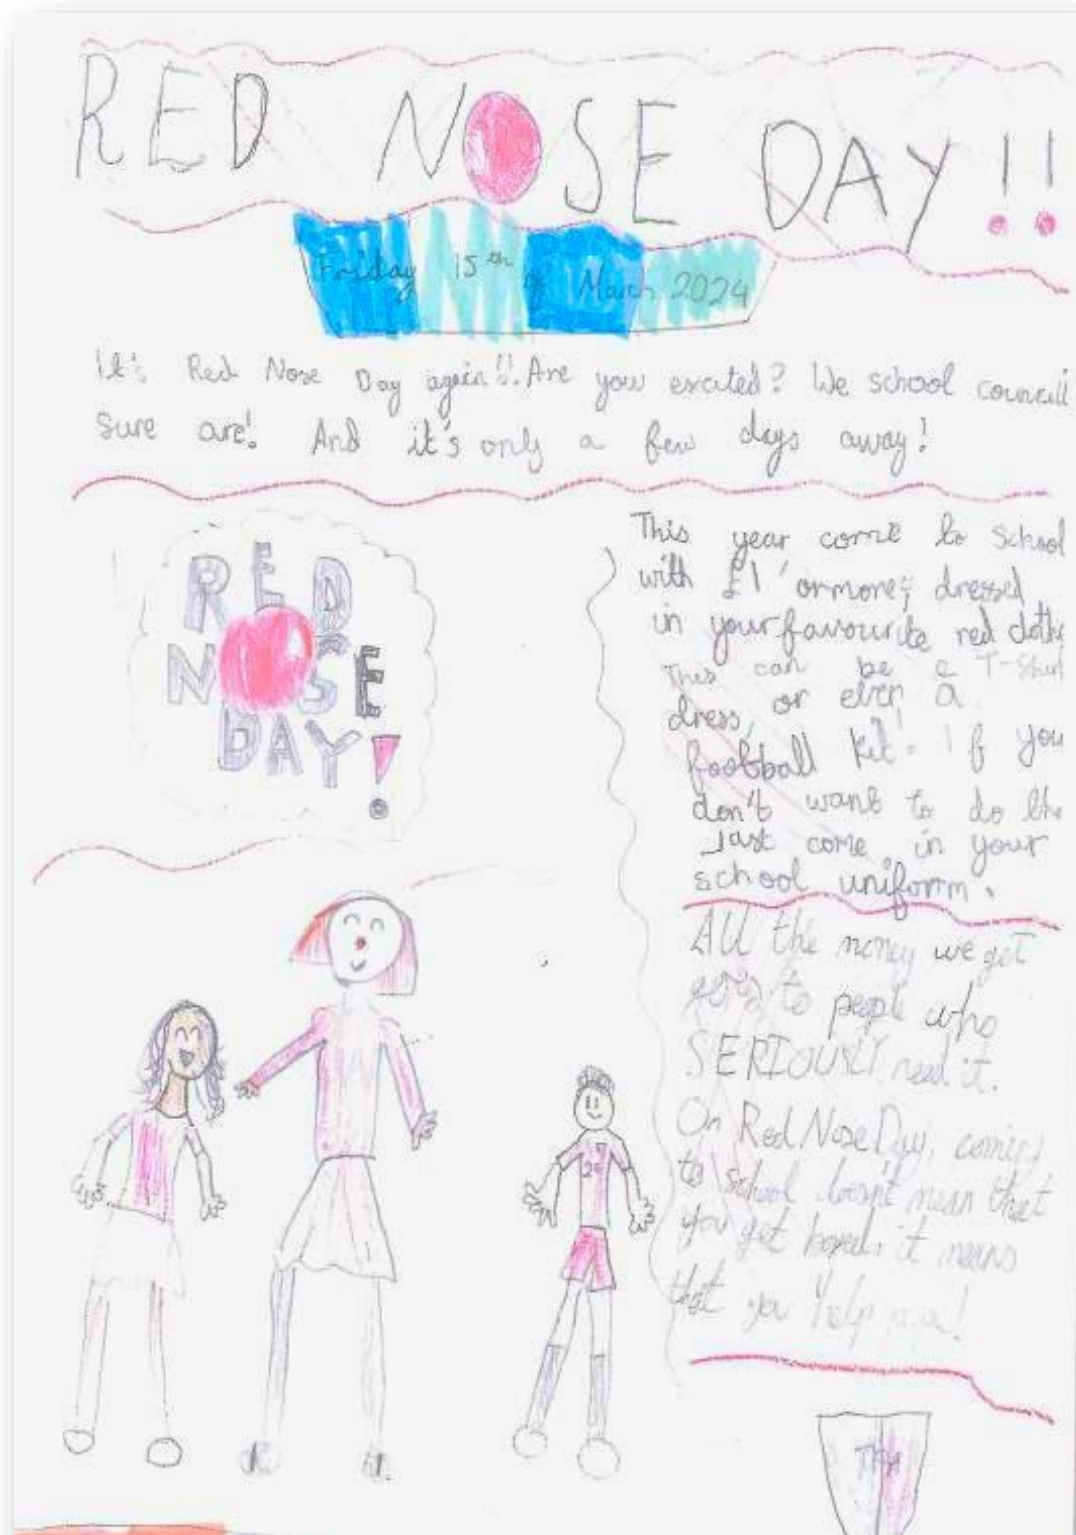 RED NOSE DAY!!
Friday 15th of March 2024
It's Red Nose Day again!!. Are you excited? We school council
sure are! And it's only a few days away!
RED
NOSE
DAY!
This year come to school
with £1 'or more', dressed
in your favourite red clothe
This can be a T-Shirt
dress, or even a
football kit! If you
don't want to do the
Just come in your
school uniform.
All the money we get
goes to people who
SERIOUSLY need it.
On Red Nose Day, coming
to school doesn't mean that
you get bored, it means
that you help